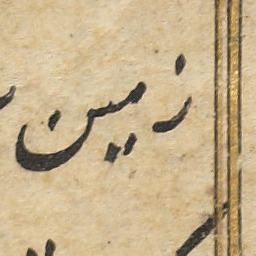 زمین